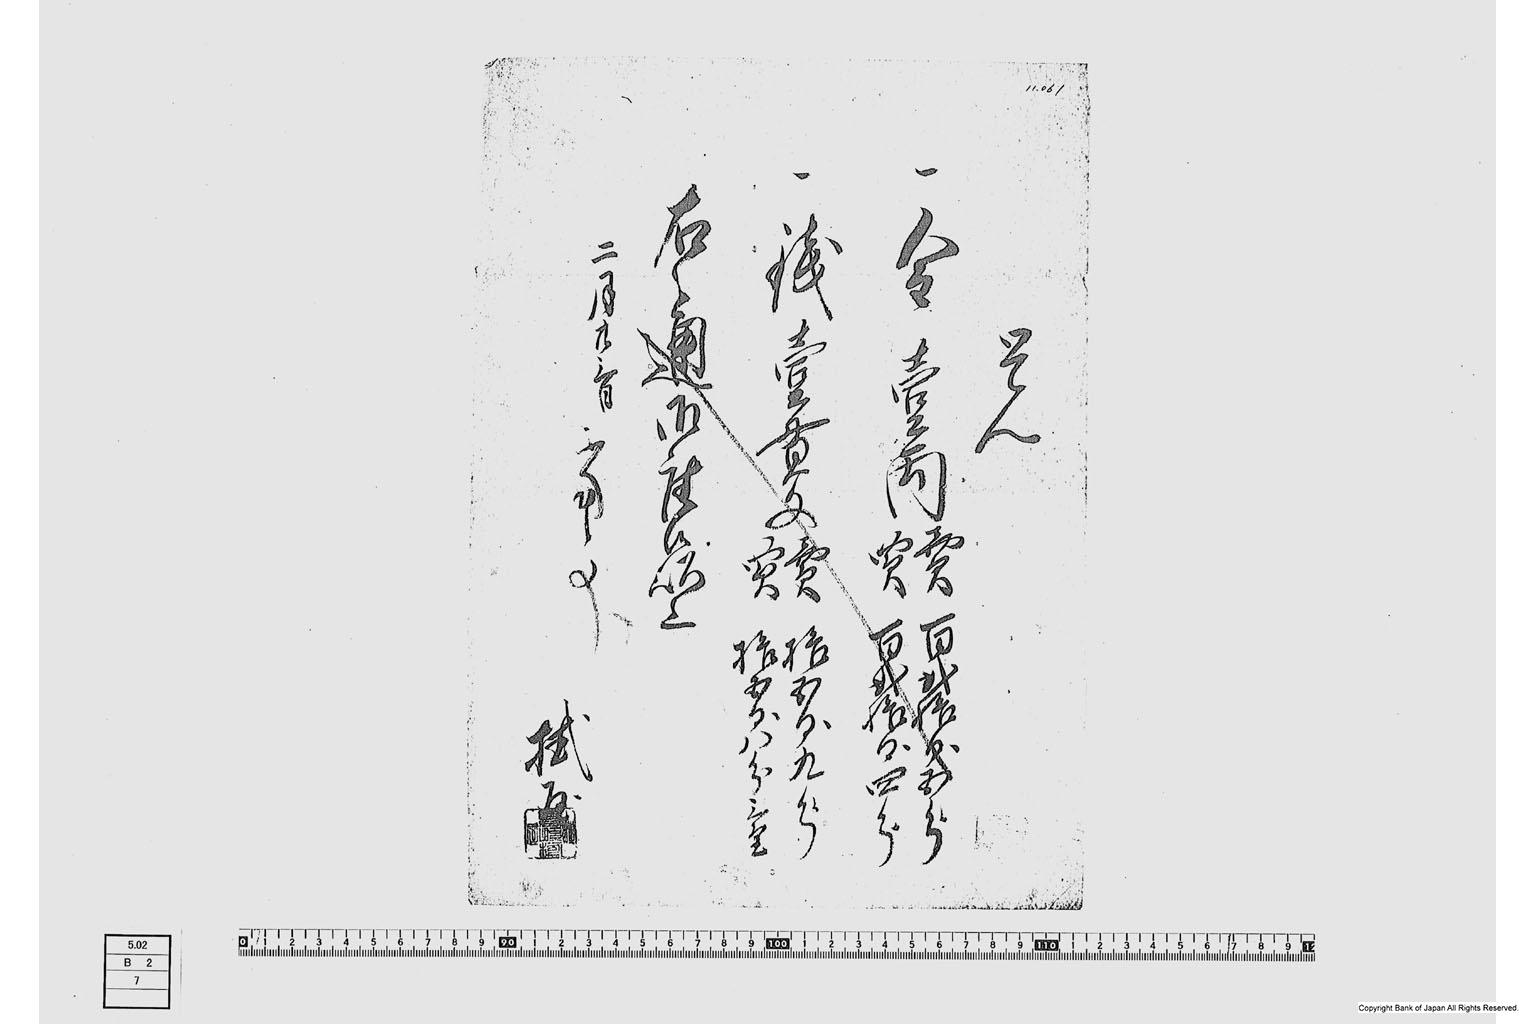 11.061
覚
一 金壹両 賣 百弐拾弐匁五分
買 百弐拾匁四分
一 銭壹貫文 賣 拾五匁九分
買 拾五匁八分三厘
右之通御座候以上
二月廿二日
5.02
B 2
7
0 1 2 3 4 5 6 7 8 9 90 1 2 3 4 5 6 7 8 9 100 1 2 3 4 5 6 7 8 9 110 1 2 3 4 5 6 7 8 9 12
Copyright Bank of Japan All Rights Reserved.